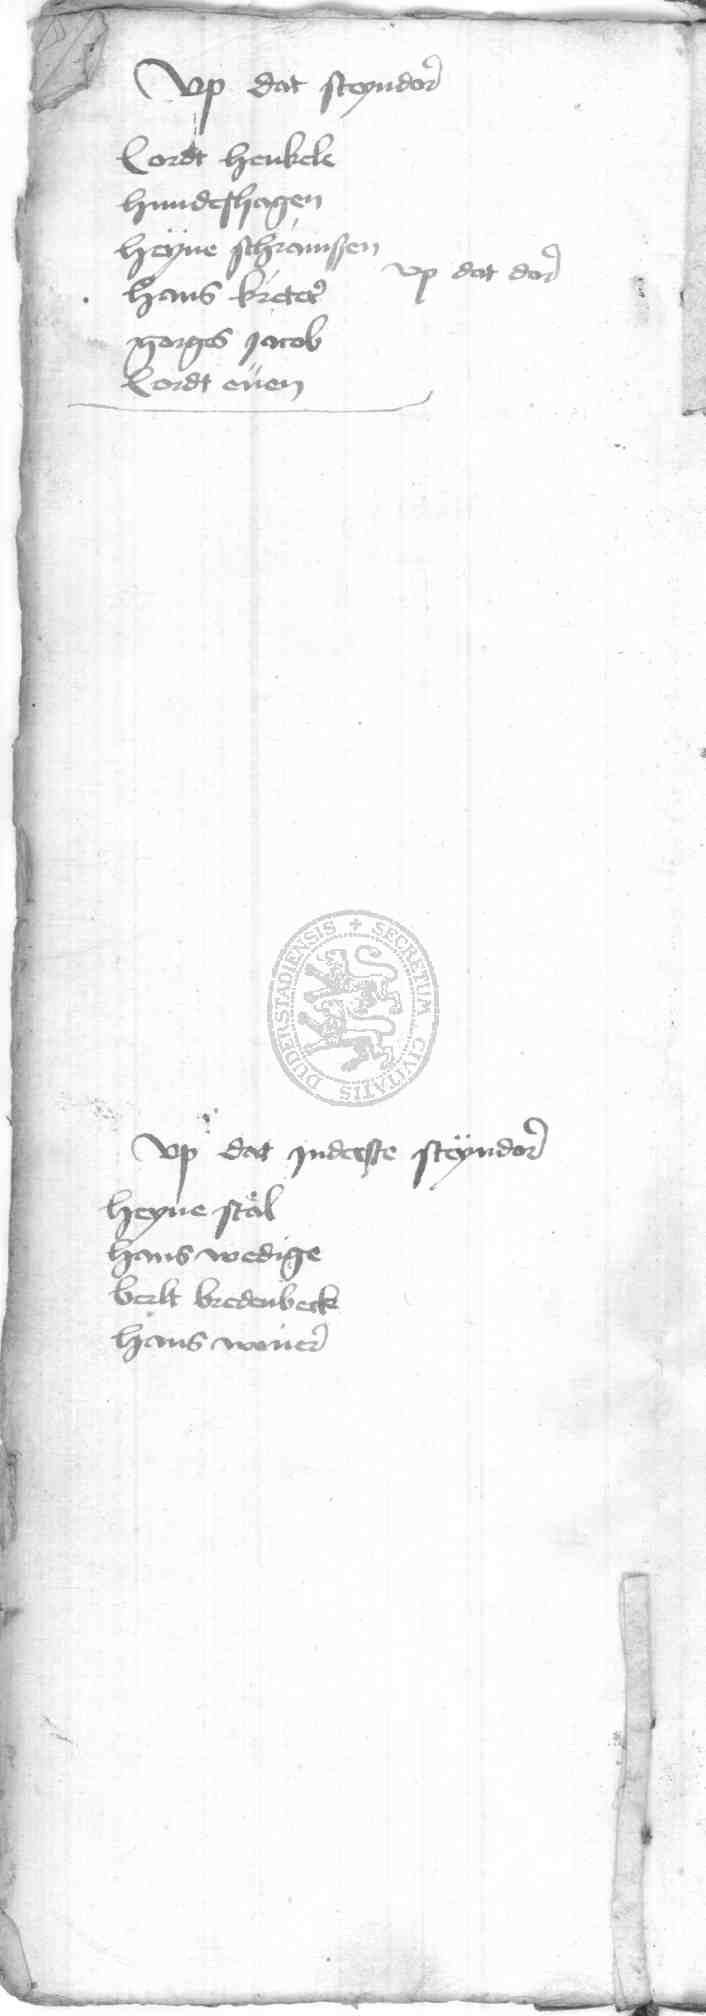 Vp dat steyndor
Cordt henkele
hundeshagen
heyne schramssen
vp dat dor
hans kreter
gorges jacob
Cordt even
SECRETUM CIVITATIS DUDERSTADIENSIS
Vp dat inderste steyndor
heyne stal
hans wedige
berlt bredenbeck
hans wever